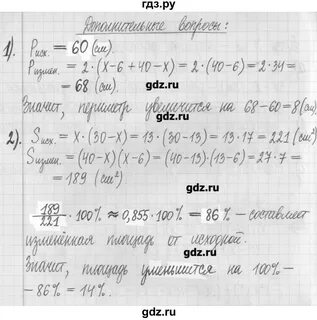 Дополнительные вопросы:
1). Pисх. = 60 (см).
Pизмен. = 2·(x-6+40-x) = 2·(40-6) = 2·34 =
= 68 (см).
Значит, периметр увеличится на 68-60=8(см).
2). Sисх. = x·(30-x) = 13·(30-13) = 13·17 = 221 (см²)
Sизмен. = (40-x)(x-6) = (40-13)·(13-6) = 27·7 =
= 189 (см²)
189/221 · 100% ≈ 0,855·100% = 86% - составляет
изменённая площадь от исходной.
Значит, площадь уменьшится на 100% -
- 86% = 14%.